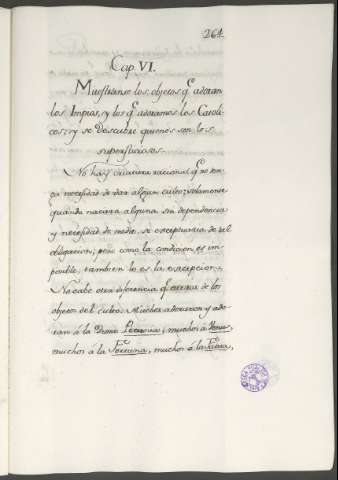 261
Cap. VI.
Muestranse los objetos qe adoran
los Impios, y los qe adoramos los Catoli-
cos: y se descubre quienes son los
supersticiosos.
No hay criatura racional qe no ten-
ga necesidad de dar algun culto: solamente
quando naciera alguna sin dependencia
y necesidad de medio, se exceptuaria de tal
obligacion; pero como la condicion es im-
posible, tambien lo es la excepcion.
No cabe otra diferencia qe errar de los
objetos del culto. Muchos adoraron y ado-
ran á la Diosa Pecunia; muchos á Venus,
muchos á la Fortuna, muchos á la